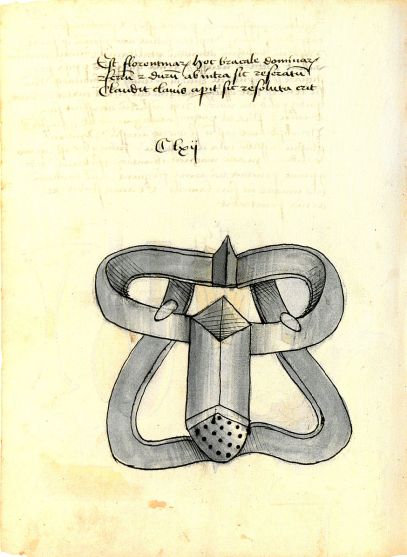 Est florentinarꝝ hoc bracale dominarꝝ
Ferrū ⁊ durū ab intra sic reseratū
Claudit clavis apit sic resoluta erit
Clxij